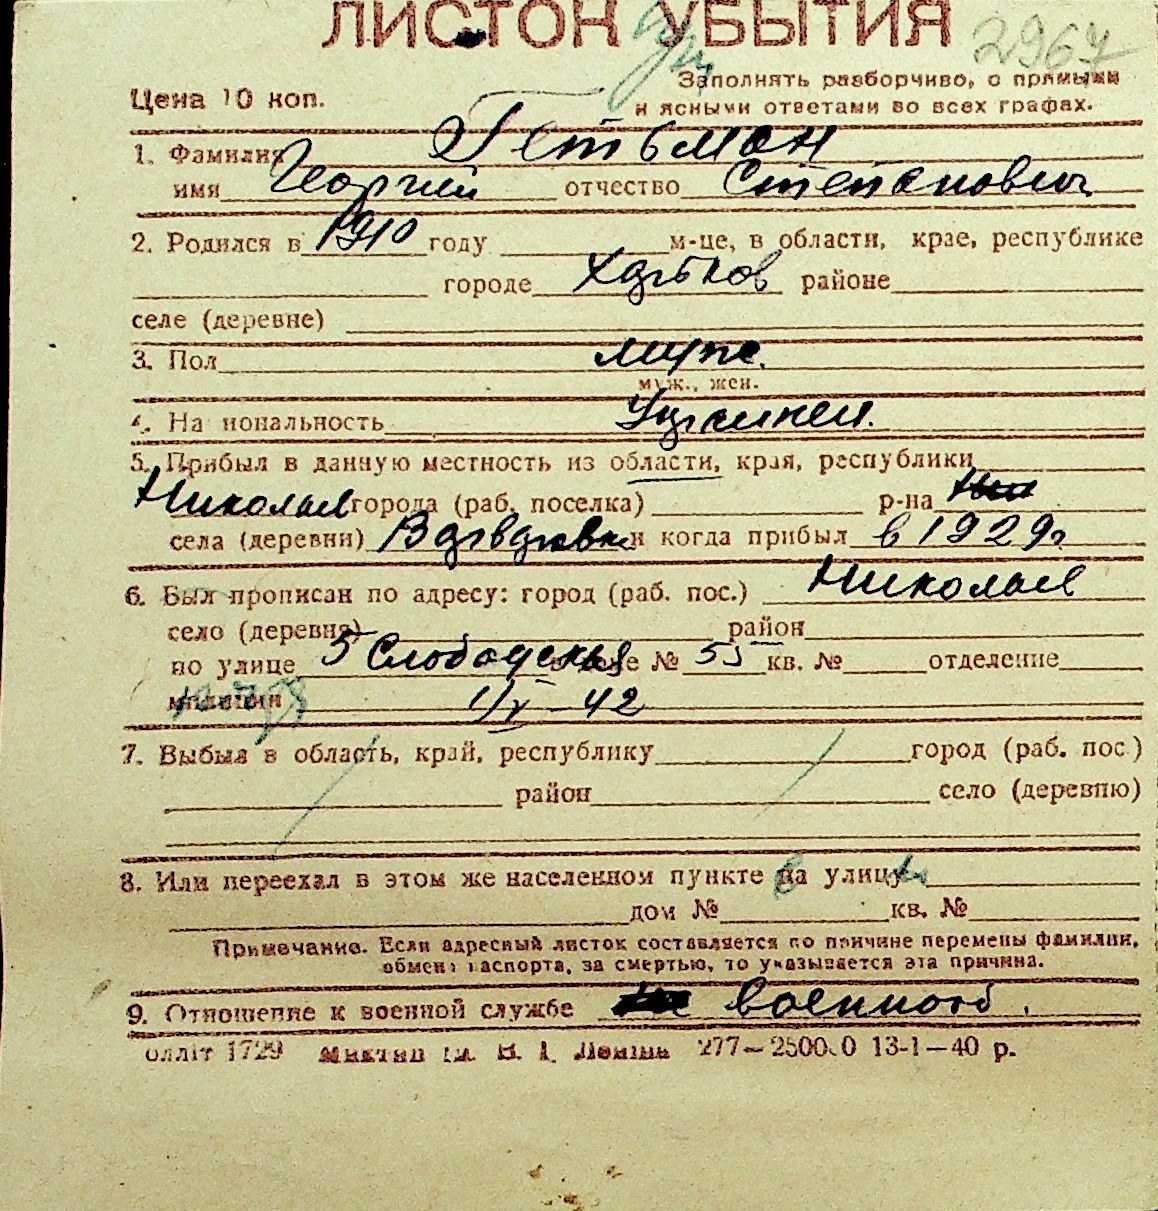 ЛИСТОК УБЫТИЯ 2967
Заполнять разборчиво, с прямыми
Цена 10 коп. и ясными ответами во всех графах.
1. Фамилия Гетьман
имя Георгий отчество Степанович
2. Родился в 1910 году м-це, в области, крае, республике
городе Харьков районе
селе (деревне)
3. Пол муж.
муж., жен.
4. Национальность Украинец.
5. Прибыл в данную местность из области, края, республики
Николаев города (раб. поселка) р-на
села (деревни) Варваровка и когда прибыл в 1929г.
6. Был прописан по адресу: город (раб. пос.) Николаев
село (деревня) район
по улице 5 Слободская в доме № 55 кв. № отделение
милиции 1/V-42
7. Выбыл в область, край, республику город (раб. пос.)
район село (деревню)
8. Или переехал в этом же населенном пункте на улицу
дом № кв. №
Примечание. Если адресный листок составляется по причине перемены фамилии,
обмена паспорта, за смертью, то указывается эта причина.
9. Отношение к военной службе военнооб.
1729 277—25000 13-1—40 р.